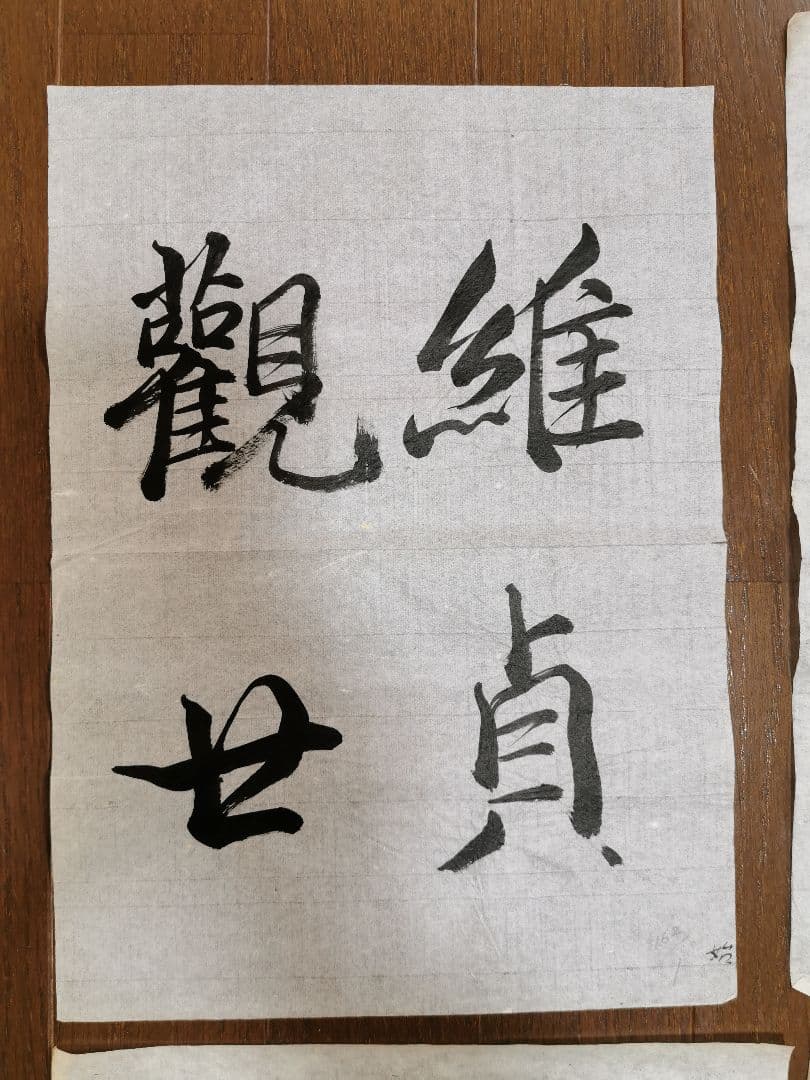 維貞
觀世